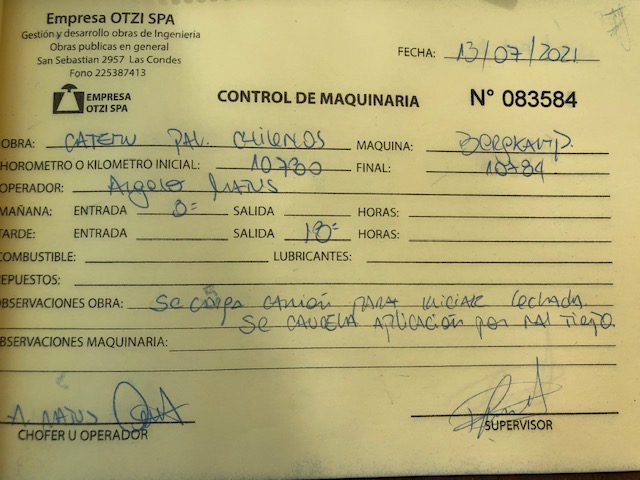 Empresa OTZI SPA
Gestión y desarrollo obras de Ingeniería
Obras publicas en general
San Sebastian 2957 Las Condes
Fono 225387413
FECHA: 13/07/2021
EMPRESA
OTZI SPA
CONTROL DE MAQUINARIA N° 083584
OBRA: PAV. MAQUINA:
HOROMETRO O KILOMETRO INICIAL: 10780 FINAL: 10784
OPERADOR:
MAÑANA: ENTRADA 8= SALIDA HORAS:
TARDE: ENTRADA SALIDA 18= HORAS:
COMBUSTIBLE: LUBRICANTES:
EPUESTOS:
OBSERVACIONES OBRA: Se carga camión para iniciar lechada
Se cancela aplicación por
BSERVACIONES MAQUINARIA:
CHOFER U OPERADOR
SUPERVISOR